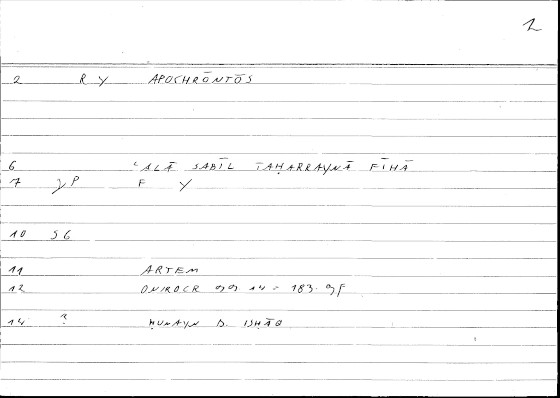 2
2 R Y APOCHRŌNTŌS
6 ʿALĀ SABĪL TAḤARRAYNĀ FĪHĀ
7 γP F Y
10 SG
11 ARTEM
12 ONIROCR 14 = 183.
14 ? ḤUNAYN B. ISḤĀQ